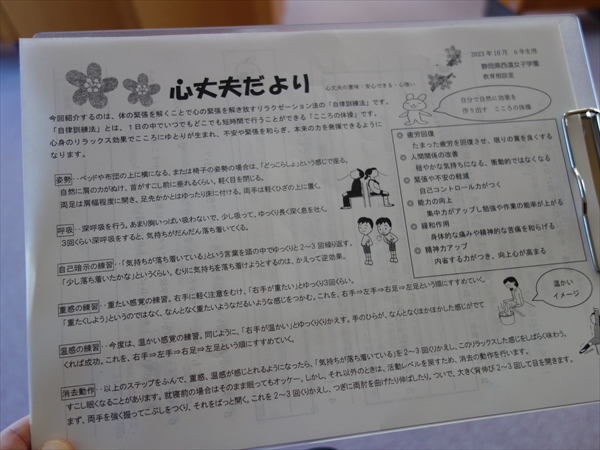 2023年10月 6年生用
静岡県西遠女子学園
教育相談室
心丈夫だより
心丈夫の意味:安心できる・心強い
今回紹介するのは、体の緊張を解くことで心の緊張を解き放すリラクゼーション法の「自律訓練法」です。
「自律訓練法」とは、1日の中でいつでもどこでも短時間で行うことができる「こころの体操」です。
心身のリラックス効果でこころにゆとりが生まれ、不安や緊張を和らぎ、本来の力を発揮できるように
なります。
自分で自然に効果を
作り出す こころの体操
姿勢・・ベッドや布団の上に横になる、または椅子の姿勢の場合は、「どっこらしょ」という感じで座る。
自然に肩の力がぬけ、首がすこし前に垂れるくらい。軽く目を閉じる。
両足は肩幅程度に開き、足先かかとはゆったり床に付ける。両手は軽くひざの上に置く。
呼吸・・深呼吸を行う。あまり胸いっぱい吸わないで、少し吸って、ゆっくり長く深く息を吐く。
3回くらい深呼吸をすると、気持ちがだんだん落ち着いてくる。
自己暗示の練習・・「気持ちが落ち着いている」という言葉を頭の中でゆっくりと2～3回繰り返す。
「少し落ち着いたかな」というくらい。むりに気持ちを落ち着けようとするのは、かえって逆効果。
重感の練習・・重たい感覚の練習。右手に軽く注意をむけ、「右手が重たい」とゆっくり3回くらい。
「重たくしよう」というのではなく、なんとなく重たいようなだるいような感じをつかむ。これを、右手⇒左手⇒右足⇒左足という順にすすめていく。
温感の練習・・今度は、温かい感覚の練習。同じように、「右手が温かい」とゆっくりくりかえす。手のひらが、なんとなくほかほかした感じがでて
くれば成功。これを、右手⇒左手⇒右足⇒左足という順にすすめていく。
消去動作・・以上のステップをふんで、重感、温感が感じとれるようになったら、「気持ちが落ち着いている」を2～3回くりかえし、このリラックスした感じをしばらく味わう。
すこし眠くなることがあります。就寝前の場合はそのまま眠ってもオッケー。しかし、それ以外のときは、活動レベルを戻すため、消去の動作を行います。
まず、両手を強く握ってこぶしをつくり、それをぱっと開く。これを2～3回くりかえし、つぎに両肘を曲げたり伸ばしたり。ついで、大きく背伸び2～3回して目を開きます。
疲労回復
たまった疲労を回復させ、眠りの質を良くする
人間関係の改善
穏やかな気持ちになる、衝動的ではなくなる
緊張や不安の軽減
自己コントロール力がつく
能力の向上
集中力がアップし勉強や作業の能率が上がる
緩和作用
身体的な痛みや精神的な苦痛を和らげる
精神力アップ
内省する力がつき、向上心が高まる
温かい
イメージ